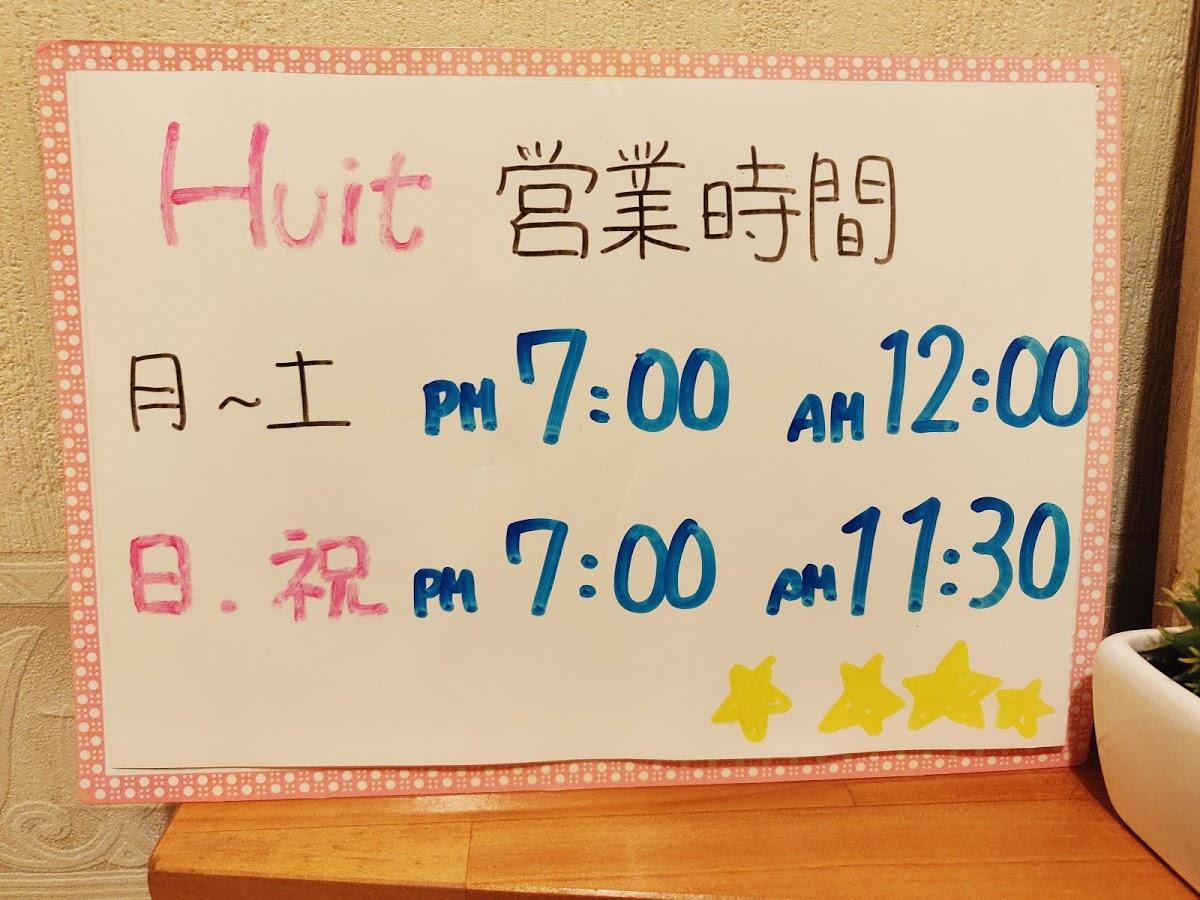 Huit 営業時間
月~土 PM 7:00 AM 12:00
日.祝 PM 7:00 PM 11:30